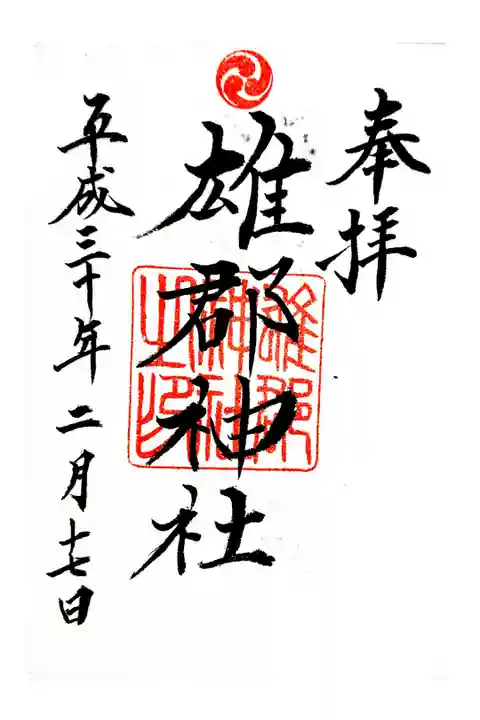 奉拝
雄郡神社
雄郡
神社
之印
平成三十年二月十七日